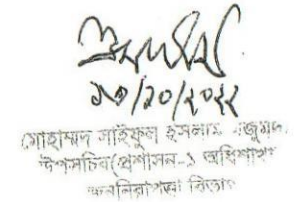 ১৩/১০/২০২২
মোহাম্মদ সাইফুল ইসলাম মজুমদার
উপসচিব (প্রশাসন-১ অধিশাখা
জননিরাপত্তা বিভাগ